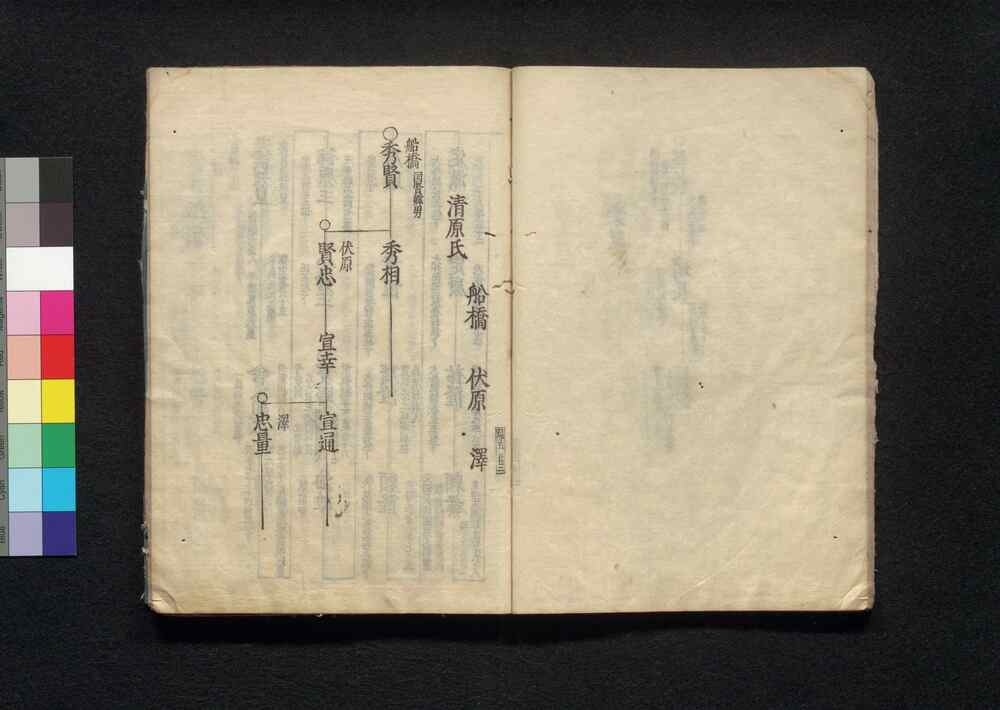 清原氏
船橋 伏原 澤
船橋
秀賢
秀相
伏原
賢忠
宣幸
宣通
澤
忠量